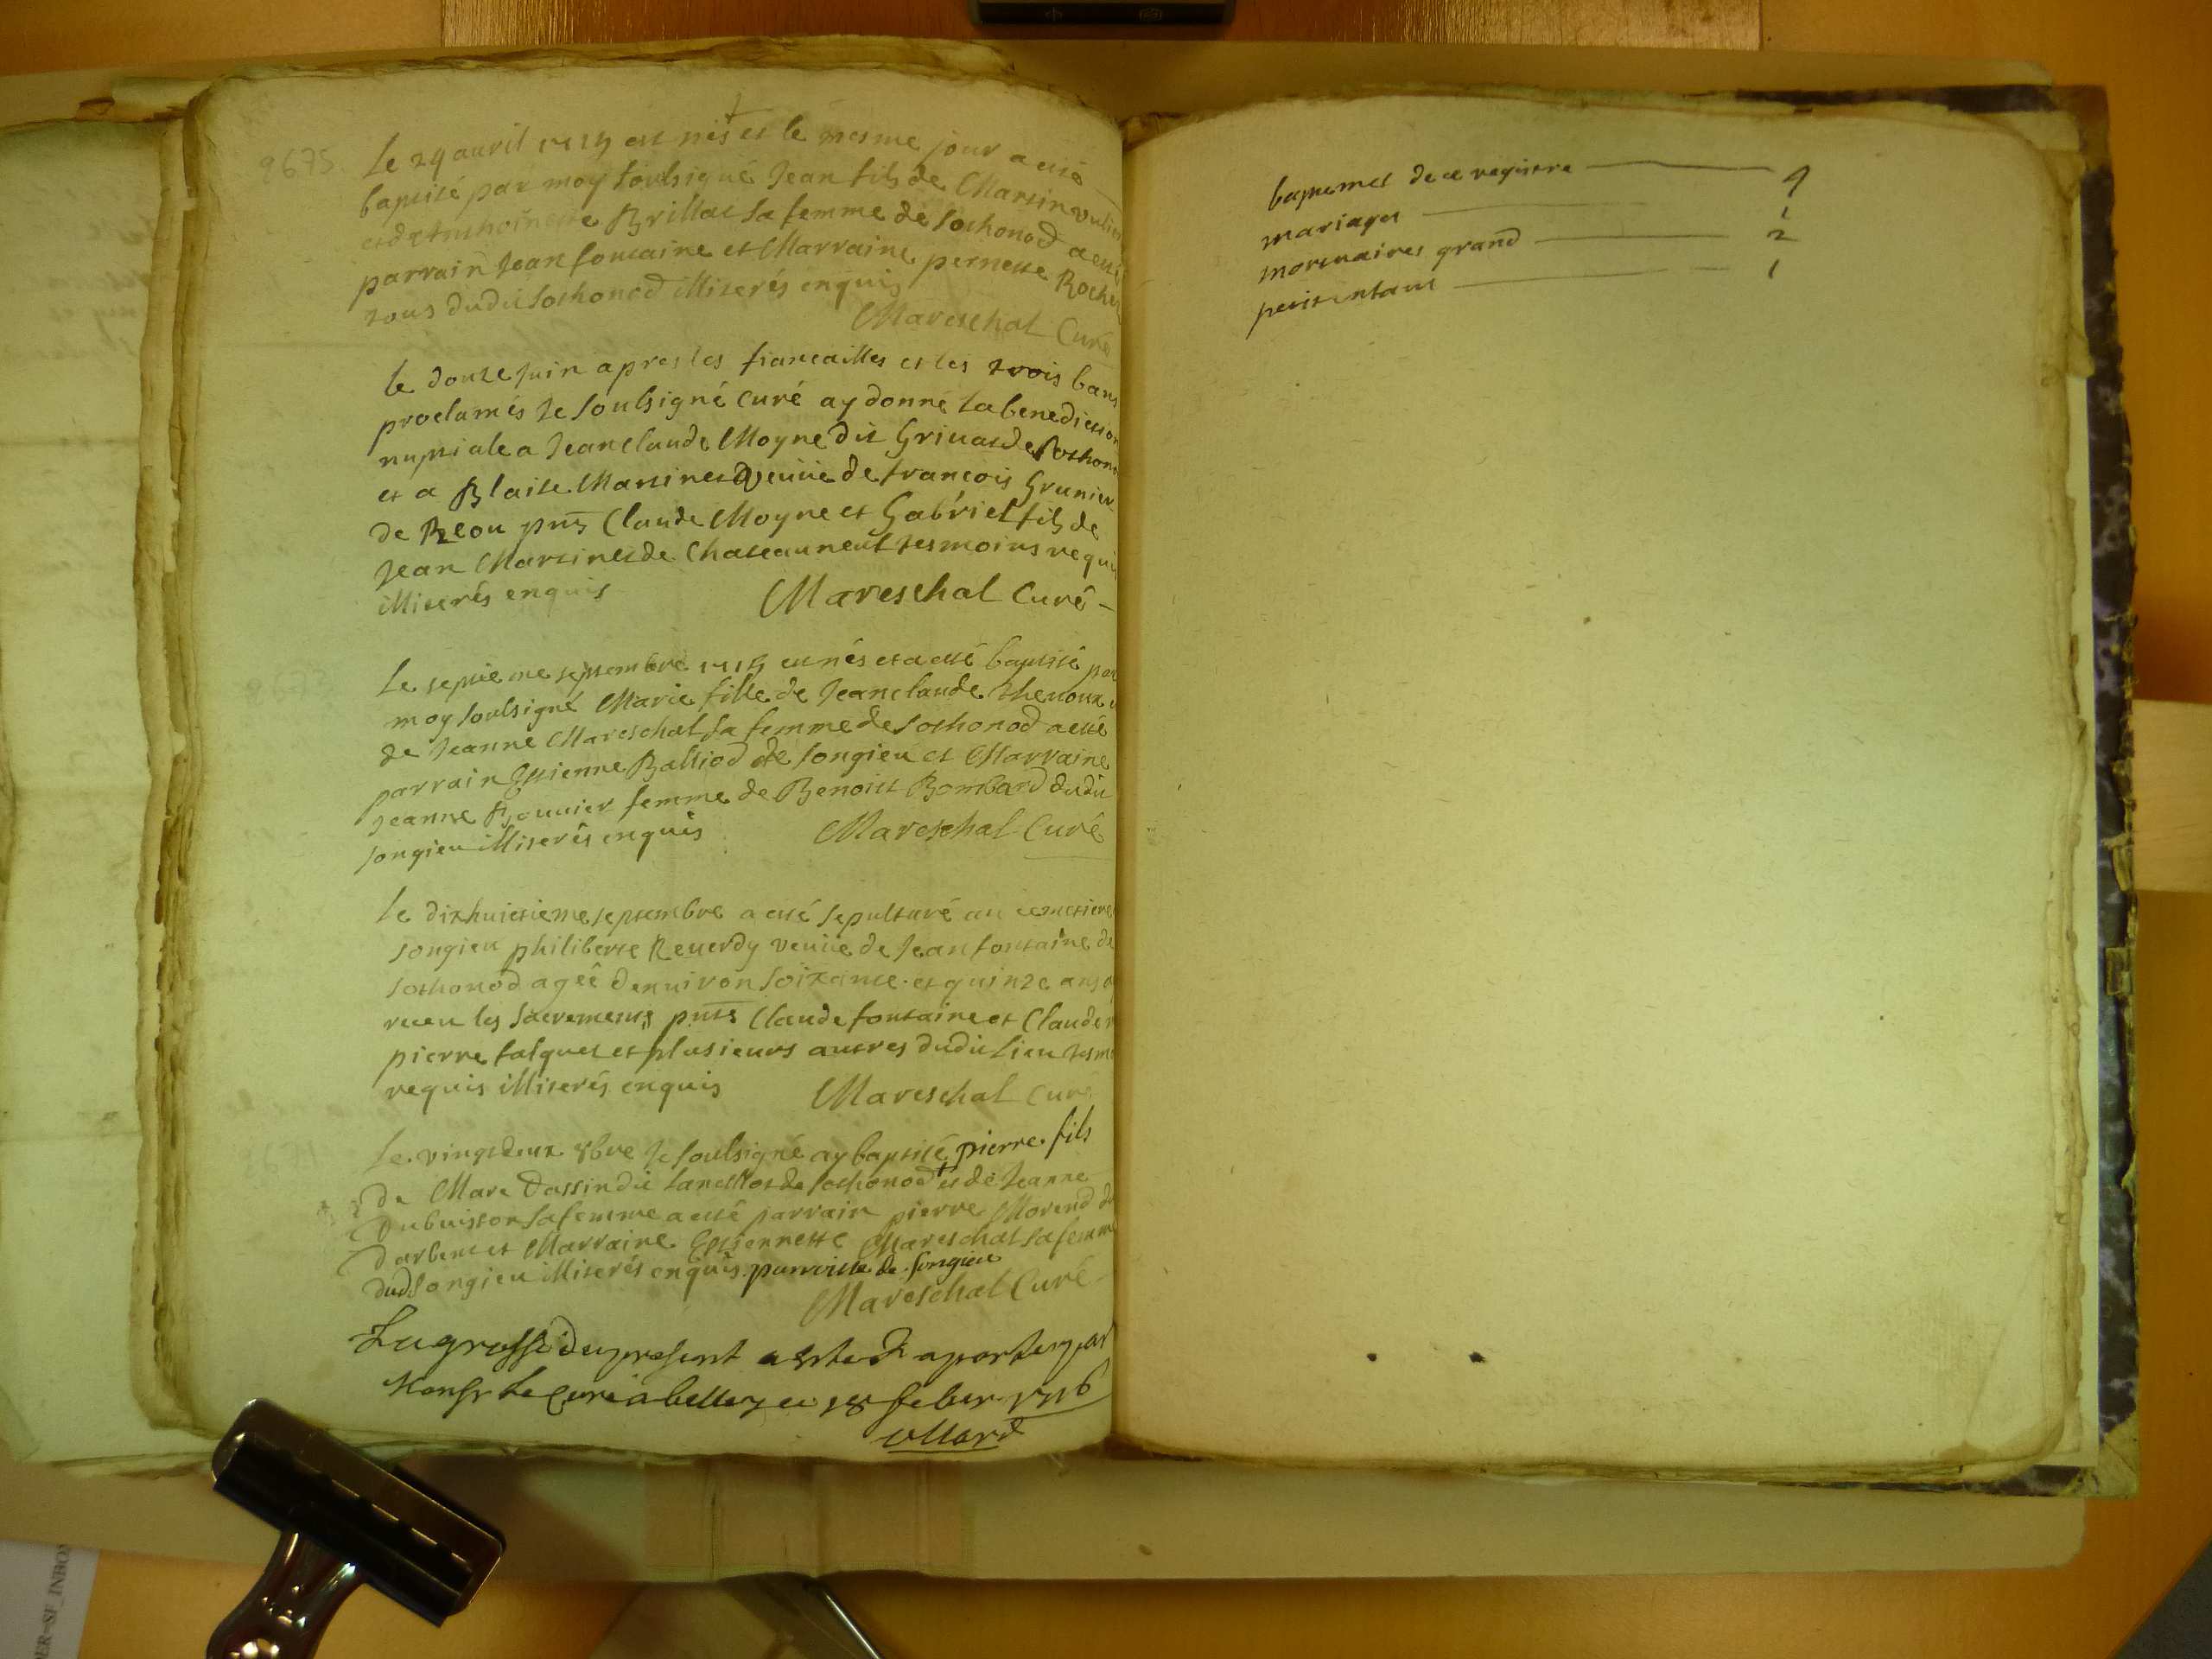 2675
Le 29 auril 1715 est nés et le mesme jour a esté
baptisé par moy soubsigné Jean fils de Martin vulie
et de Anthoinette Brillat sa femme de sothonod a esté
parrain Jean fontaine et Marraine pernette Roche
tous dudit sothonod illiterés enquis
Mareschal Curé
le douze Juin apres les fiancailles et les trois bans
proclamés Je soubsigné curé ay donné la benediction
nuptiale a Jean claude Moyne dit Grinat de sothono
et a Blaise Martinet veuue de francois Grunier
de Beou pnts Claude Moyne et Gabriel fils de
Jean Martinet de chateauneuf tesmoins requis
illiterés enquis
Mareschal Curé
Le septieme septembre 1715 est nés et a esté baptisé par
moy soubsigné Marie fille de Jean claude thenoux
de Jeanne Mareschal sa femme de sothonod a esté
parrain Estienne Balliod de songieu et Marraine
Jeanne Bouuier femme de Benoist Bombard dudit
songieu illiterés enquis
Mareschal Curé
Le dixhuictieme septembre a esté sepulturé au cemetiere
songieu philiberte Reuerdy veuue de Jean fontaine de
sothonod ageê denuiron soixante et quinze ans
receu les sacrements pnts Claude fontaine et Claude
pierre falquet et plusieurs autres dudit Lieu tesm
requis illiterés enquis
Mareschal Curé
Le vingtdeux 8bre Je soubsigné ay baptisé pierre fils
de Marc Dassin dit de sothonod et de Jeanne
Dubuisson sa femme a esté parrain pierre Morend
et Marraine Estiennette Mareschal sa femme
dud songieu illiterés enquis parroisse de songieu
Mareschal Curé
La grosse du present a esté aportez par
Monsr le Curé a belley ce 18 feber 1716
baptemes de ce registre 9
mariages 1
mortuaires grand 2
petit enfant 1